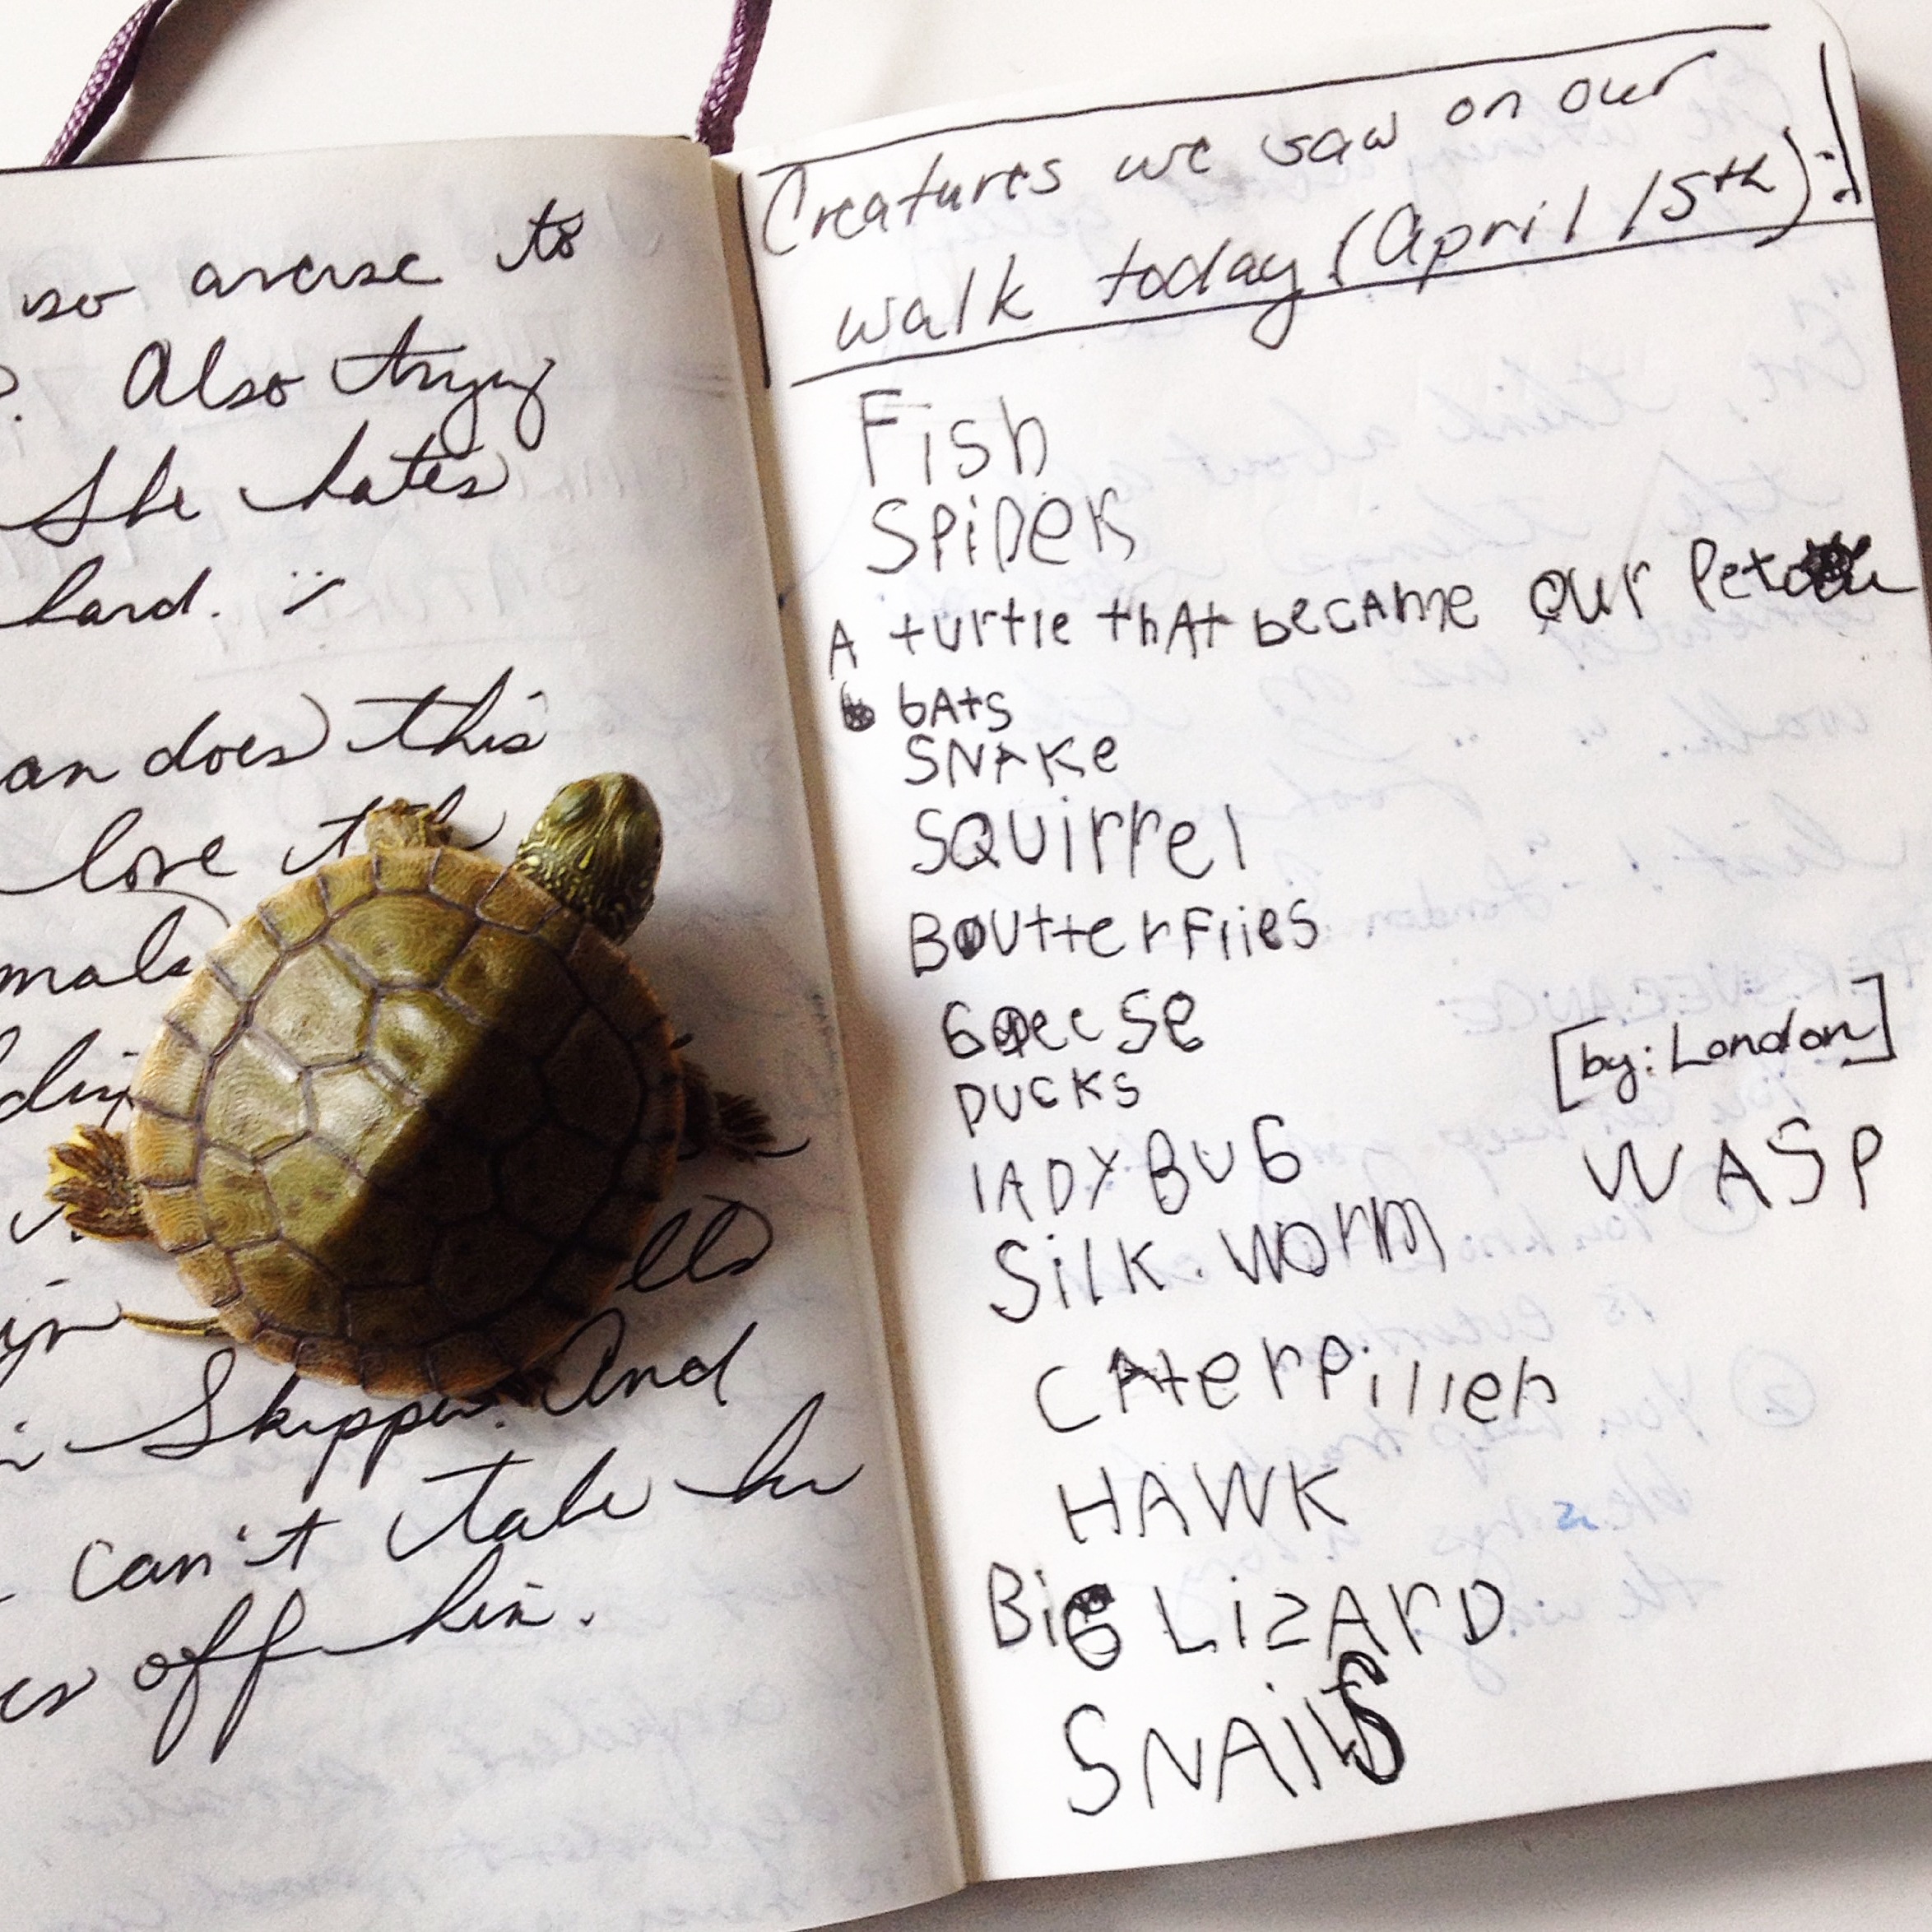 so averse to
. Also trying
She hates
hard.
an does this
love
mals
Skipper. And
can't take her
es off him.
Creatures we saw on our
walk today (April 15th):
Fish
SPiDER
A turtle thAt becAme our Pet
bAts
SNAKe
SQuirrel
BoutterFlies
Geese
DUCKS
lADYBUG
[by: London]
WASP
Silk worm
CAterPiller
HAWK
BiG LizArD
SNAilS